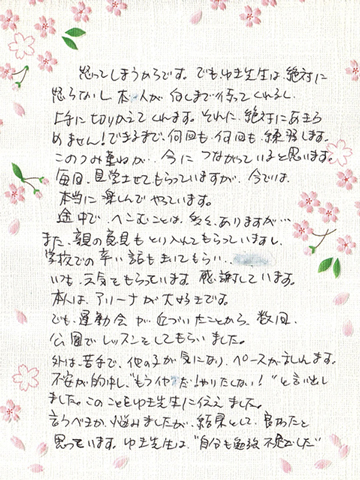 怒ってしまうからです。でもゆき先生は、絶対に
怒らないし 本人が 何しまで待ってくれるし、
上手に切りかえてくれます。それに、絶対にあきら
めません！できるまで、何回も、何回も、練習します。
このつみ重ねが、今に つながっていると思います。
毎回、見学させてもらっていますが、今では、
本当に楽しんでやっています。
途中で、へこむことは、多々、ありますが…
また、親の意見もとり入れてもらっていますし、
学校での辛い話も聞いてもらい、
いつも、元気をもらっています。感謝しています。
本人は、アリーナが大好きです。
でも、運動会が近づいたことから、数回、
公園でレッスンとしてもらいました。
外は、苦手で、他の子が気になり、ペースが乱します。
不安が的中し、"もうイヤだ！やりたくない！" と言い出し
ました。このことをゆき先生に伝えました。
言うべきか、悩みましたが、結果として、良かったと
思っています。ゆき先生は、"自分も勉強不足でした"